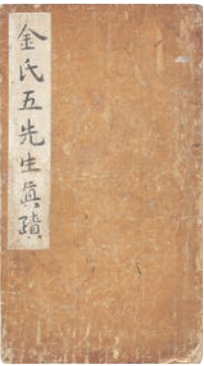 金氏五先生眞蹟